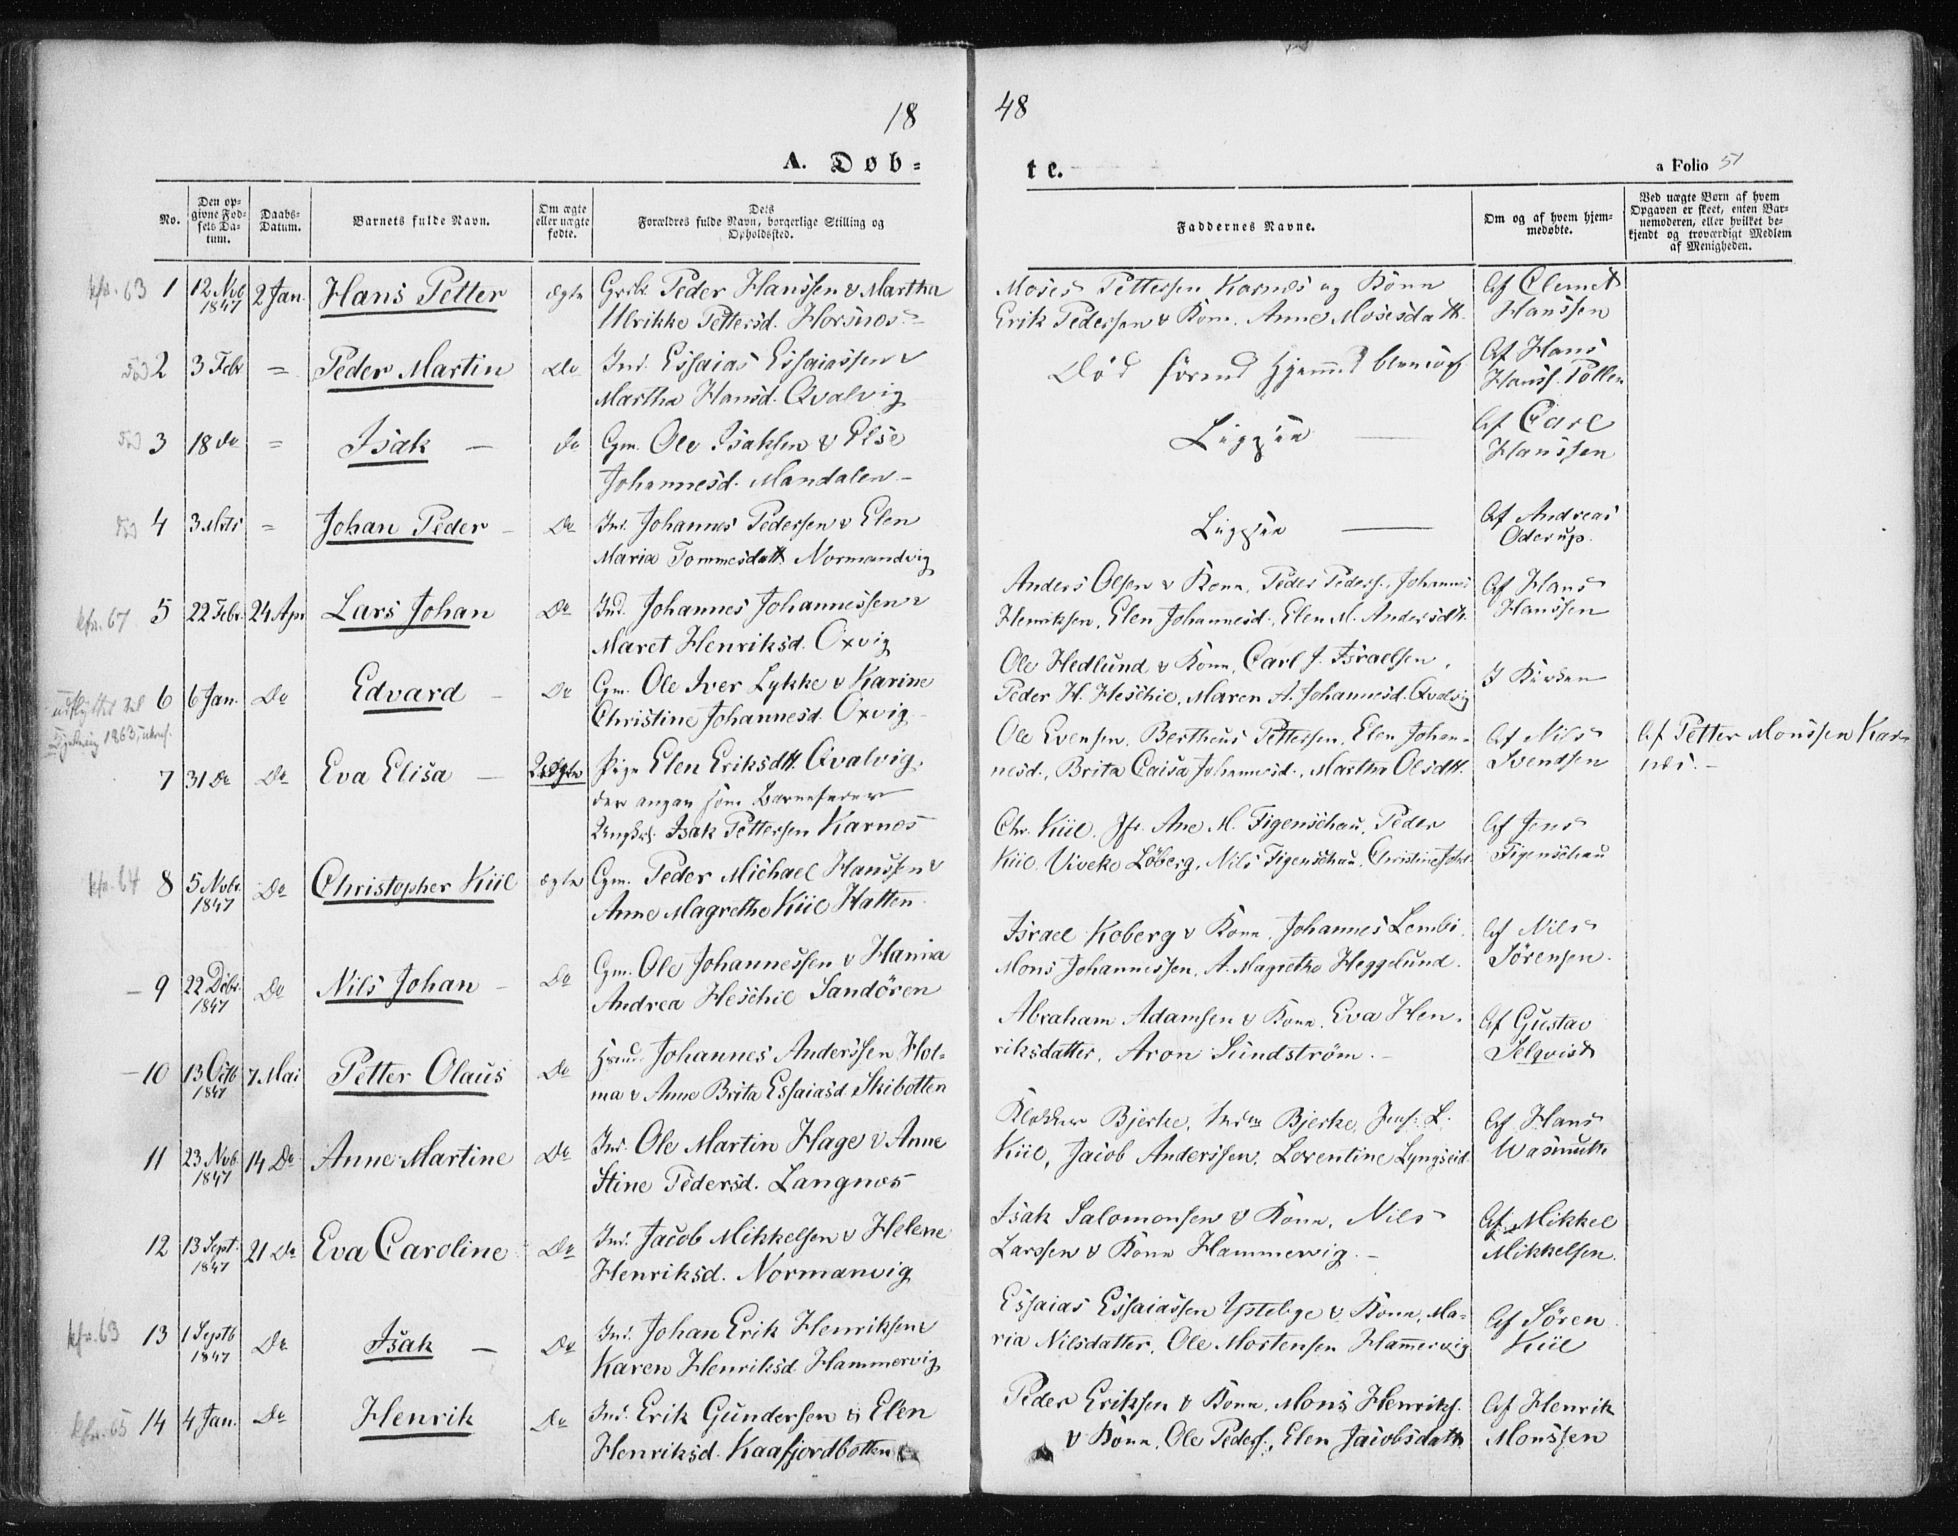 18
48
A. Døb-
te.
a Folio 51
No.
Den op-
givne Fød-
sels Da-
tum.
Daabs-
Datum.
Barnets fulde Navn.
Om ægte
eller uægte
fødte.
Dets
Forældres fulde Navn, borgerlige Stilling og
Opholdssted.
Faddernes Navne.
Om og af hvem hjem-
medøbte.
Ved uægte Børn af hvem
Opgaven er skeet, enten Bar-
nemoderen, eller hvilket be-
kjendt og troværdigt Medlem
af Menigheden.
kfr. 63 1 12 Nvb 1847 2 Jan. Hans Petter ægte Peder Hanssen & Martha
Ulrikke Pettersd. Horsnæs.
Moses Pettersen Karnæs og Kone
Erik Pedersen & Kone. Anne Mosesdatt.
Af Clemet
Hanssen
død 2 3 Febr = Peder Martin Do Ind. Essaias Essaiassen &
Martha Hansd. Qvalvig
Død førend Hjemmed.
Af Hans
Hanss. Pollen
død 3 18 Do = Isak — Do Gm. Ole Isaksen & Else
Johannesd. Mandalen —
Af Carl
Hanssen
død 4 3 Mrts = Johan Peder — Do Ind. Johannes Pedersen & Elen
Maria Tommesdatt. Normandvig
Af Andreas
Oderup.
kfr. 67 5 22 Febr. 24 Apr Lars Johan Do Ind. Johannes Johannessen &
Maret Henriksd. Oxvig
Anders Olsen & Kone, Peder Peders., Johannes
Henriksen, Elen Johannesd., Elen M. Andersdtr.
Af Hans
Hanssen
udflyttet til
1863
6 6 Jan. Do Edvard — Do Gm. Ole Iver Lykke & Karine
Christine Johannesd. Oxvig.
Ole Hedlund & Kone, Carl J. Israelsen,
Peder H. Heschie, Maren A. Johannesd. Qvalvig
I Kirken
7 31 Do Do Eva Elisa — Uægte Pige Elen Eriksdtt. Qvalvig,
der angav som Barnefader
Ungk. Isak Pettersen Karnes
Ole Evensen, Bertheus Pettersen, Elen Johan-
nesd., Brita Caisa Johannesd., Martha Olsdtt.
Af Nils
Svendsen
Af Petter Monssen Kar-
næs. —
kfr. 64 8 5 Novbr. 1847 Do Christopher Kiil ægte Gm. Peder Michael Hanssen &
Anne Magrethe Kiil Hatten.
Chr. Kiil, Jfr. Ane M. Figenschau, Peder
Kiil, Viveke Løberg, Nils Figenschau, Christine
Af Jens
Figenschau
— 9 22 Debr. 1847 Do Nils Johan — Do Gm. Ole Johannessen & Hanna
Andrea Heschie Sandören
Israel Koberg & Kone, Johannes Lembi,
Mons Johannessen, A. Magrethe Heggelund.
Af Nils
Sörensen.
— 10 13 Octb 1847 7 Mai Petter Olaus Do Johannes Anderssen Hol-
ma & Anne Brita Essaiasd. Skibotten
Abraham Adamsen & Kone, Eva Hen-
riksdatter, Aron Sundström. —
Af Gustav
Selqvist
11 23 Nvb. 1847 14 Do Anne Martine Do Ind. Ole Martin Hage & Anne
Stine Pedersd. Langnæs
Klokker Bjerke, Bjerke, L.
Kiil, Jacob Anderssen, Lorentine Lyngseid.
Af Hans
Wasmuth
12 13 Sept. 1847 21 Do Eva Caroline Do Ind. Jacob Mikkelsen & Helene
Henriksd. Normanvig
Isak Salomonsen & Kone, Nils
Larssen & Kone Hammervig. —
Af Mikkel
Mikkelsen.
kfr. 63 13 1 Septb 1847 Do Isak — Do Ind. Johan Erik Henriksen &
Karen Henriksd. Hammervig
Essaias Essaiassen & Kone, Ma-
ria Nilsdatter, Ole Mortensen Hammervig
Af Sören
Kiil
kfr. 65 14 4 Jan. Do Henrik Do Ind. Erik Gundersen & Elen
Henriksd. Kaafjordbotten
Peder Eriksen & Kone, Mons Henriks.
& Kone, Ole Peders., Elen Jacobsdatt.
Af Henrik
Monssen